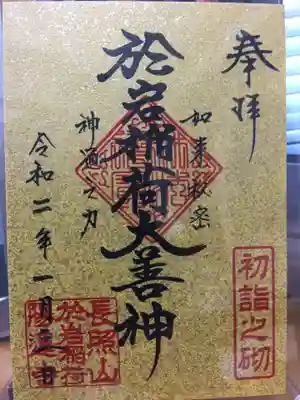 奉拝
如来秘密
於岩稲荷大善神
神通之力
令和二年一月
初詣之砌
長照山
於岩稲荷
陽運寺